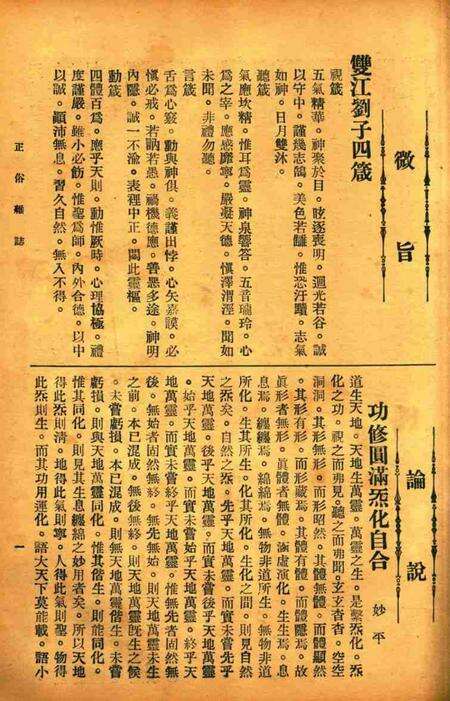 微旨
雙江劉子四箴
視箴
五氣精華。神聚於目。眩逐喪明。迴光若谷。誠
以守中。謹幾志鵠。美色若讎。惟恐汙瞶。志氣
如神。日月雙沐。
聽箴
氣應坎精。惟耳爲靈。神泉響答。五音瓏玲。心
爲之宰。應感靡寧。嚴凝天德。愼澤渭涇。聞如
未聞。非禮勿聽。
言箴
舌爲心竅。動與神俱。義謹出悖。心矢嘉謨。必
愼必戒。若訥若愚。禍機德應。善惡多途。神明
內隱。誠一不渝。表裡中正。闔此靈樞。
動箴
四體百爲。應乎天則。動惟厥時。心理協極。禮
度謹嚴。雖小必飭。惟聖爲師。內外合德。以中
以誠。顚沛無息。習久自然。無入不得。
論說
功修圓滿炁化自合
妙平
道生天地。天地生萬靈。萬靈之生。是繫炁化。炁
化之功。視之而弗見。聽之而弗聞。玄玄杳杳。空空
洞洞。其形無形。而形昭然。其體無體。而體顯然
。其形有形。而形藏焉。其體有體。而體隱焉。故
眞形者無形。眞體者無體。涵虛演化。生生焉。息
息焉。纏纏焉。綿綿焉。無物非道所生。無物非道
所化。生其所生。化其所化。生化之間。則見自然
之炁矣。自然之炁。先乎天地萬靈。而實未嘗先乎
天地萬靈。後乎天地萬靈。而實未嘗後乎天地萬靈
。始乎天地萬靈。而實未嘗始乎天地萬靈。終乎天
地萬靈。而實未嘗終乎天地萬靈。惟無先者固然無
後。無始者固然無終。無先無始。則天地萬靈未生
之前。本已混成。無後無終。則天地萬靈既生之候
。未嘗虧損。本已混成。則無天地萬靈偕生。未嘗
虧損。則與天地萬靈同化。惟其偕生。則能同化。
惟其同化。則見其生息纏綿之妙用者矣。所以天地
得此炁則清。地得此氣則寧。人得此氣則聖。物得
此炁則生。而其功用運化。語大天下莫能載。語小
正俗雜誌
一